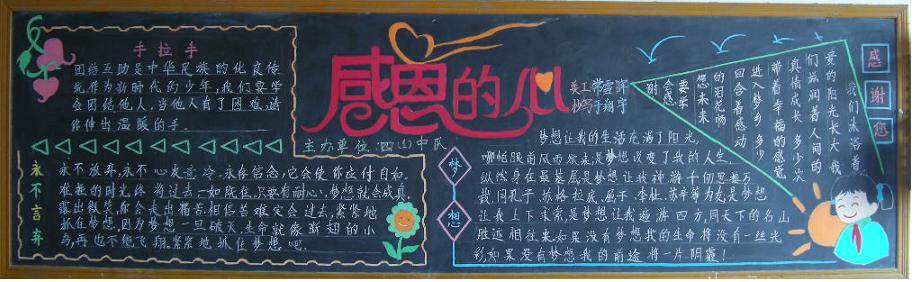 手拉手
团结互助是中华民族的优良传
统作为新时代的少年,我们要学
会团结他人,当他人有了困难,请
你伸出温暖的手.
永不言弃
永不放弃,永不心灰意冷.永存信念,它会使你应付自如.
难熬的时光终将过去一如既往,只要有耐心,梦想就会成真.
露出微笑,你会走出痛苦.相信苦难定会过去,紧紧地
抓住梦想,因为梦想一旦破灭,生命就像断翅的小
鸟,再也不能飞翔.紧紧地抓住梦想吧
感恩的心
主办单位:四(1)中队
美工
抄写
梦想
梦想让我的生活充满了阳光,
纵然身在
我同孔子、苏格拉底、屈子、李杜、苏辛等为友,是梦想
让我上下求索是梦想让我遨游四方,同天下的名山
胜迹相往来.如果没有梦想我的生命将没有一丝光
彩如果没有梦想我的前途将一片阴霾!
感谢您
我们沐浴着
爱的阳光长大
我们滋润着人间的
真情成长 多少次
带着幸福的感觉
进入梦乡 多少
回含着感动
的泪花畅
想未来
要学
会感
谢